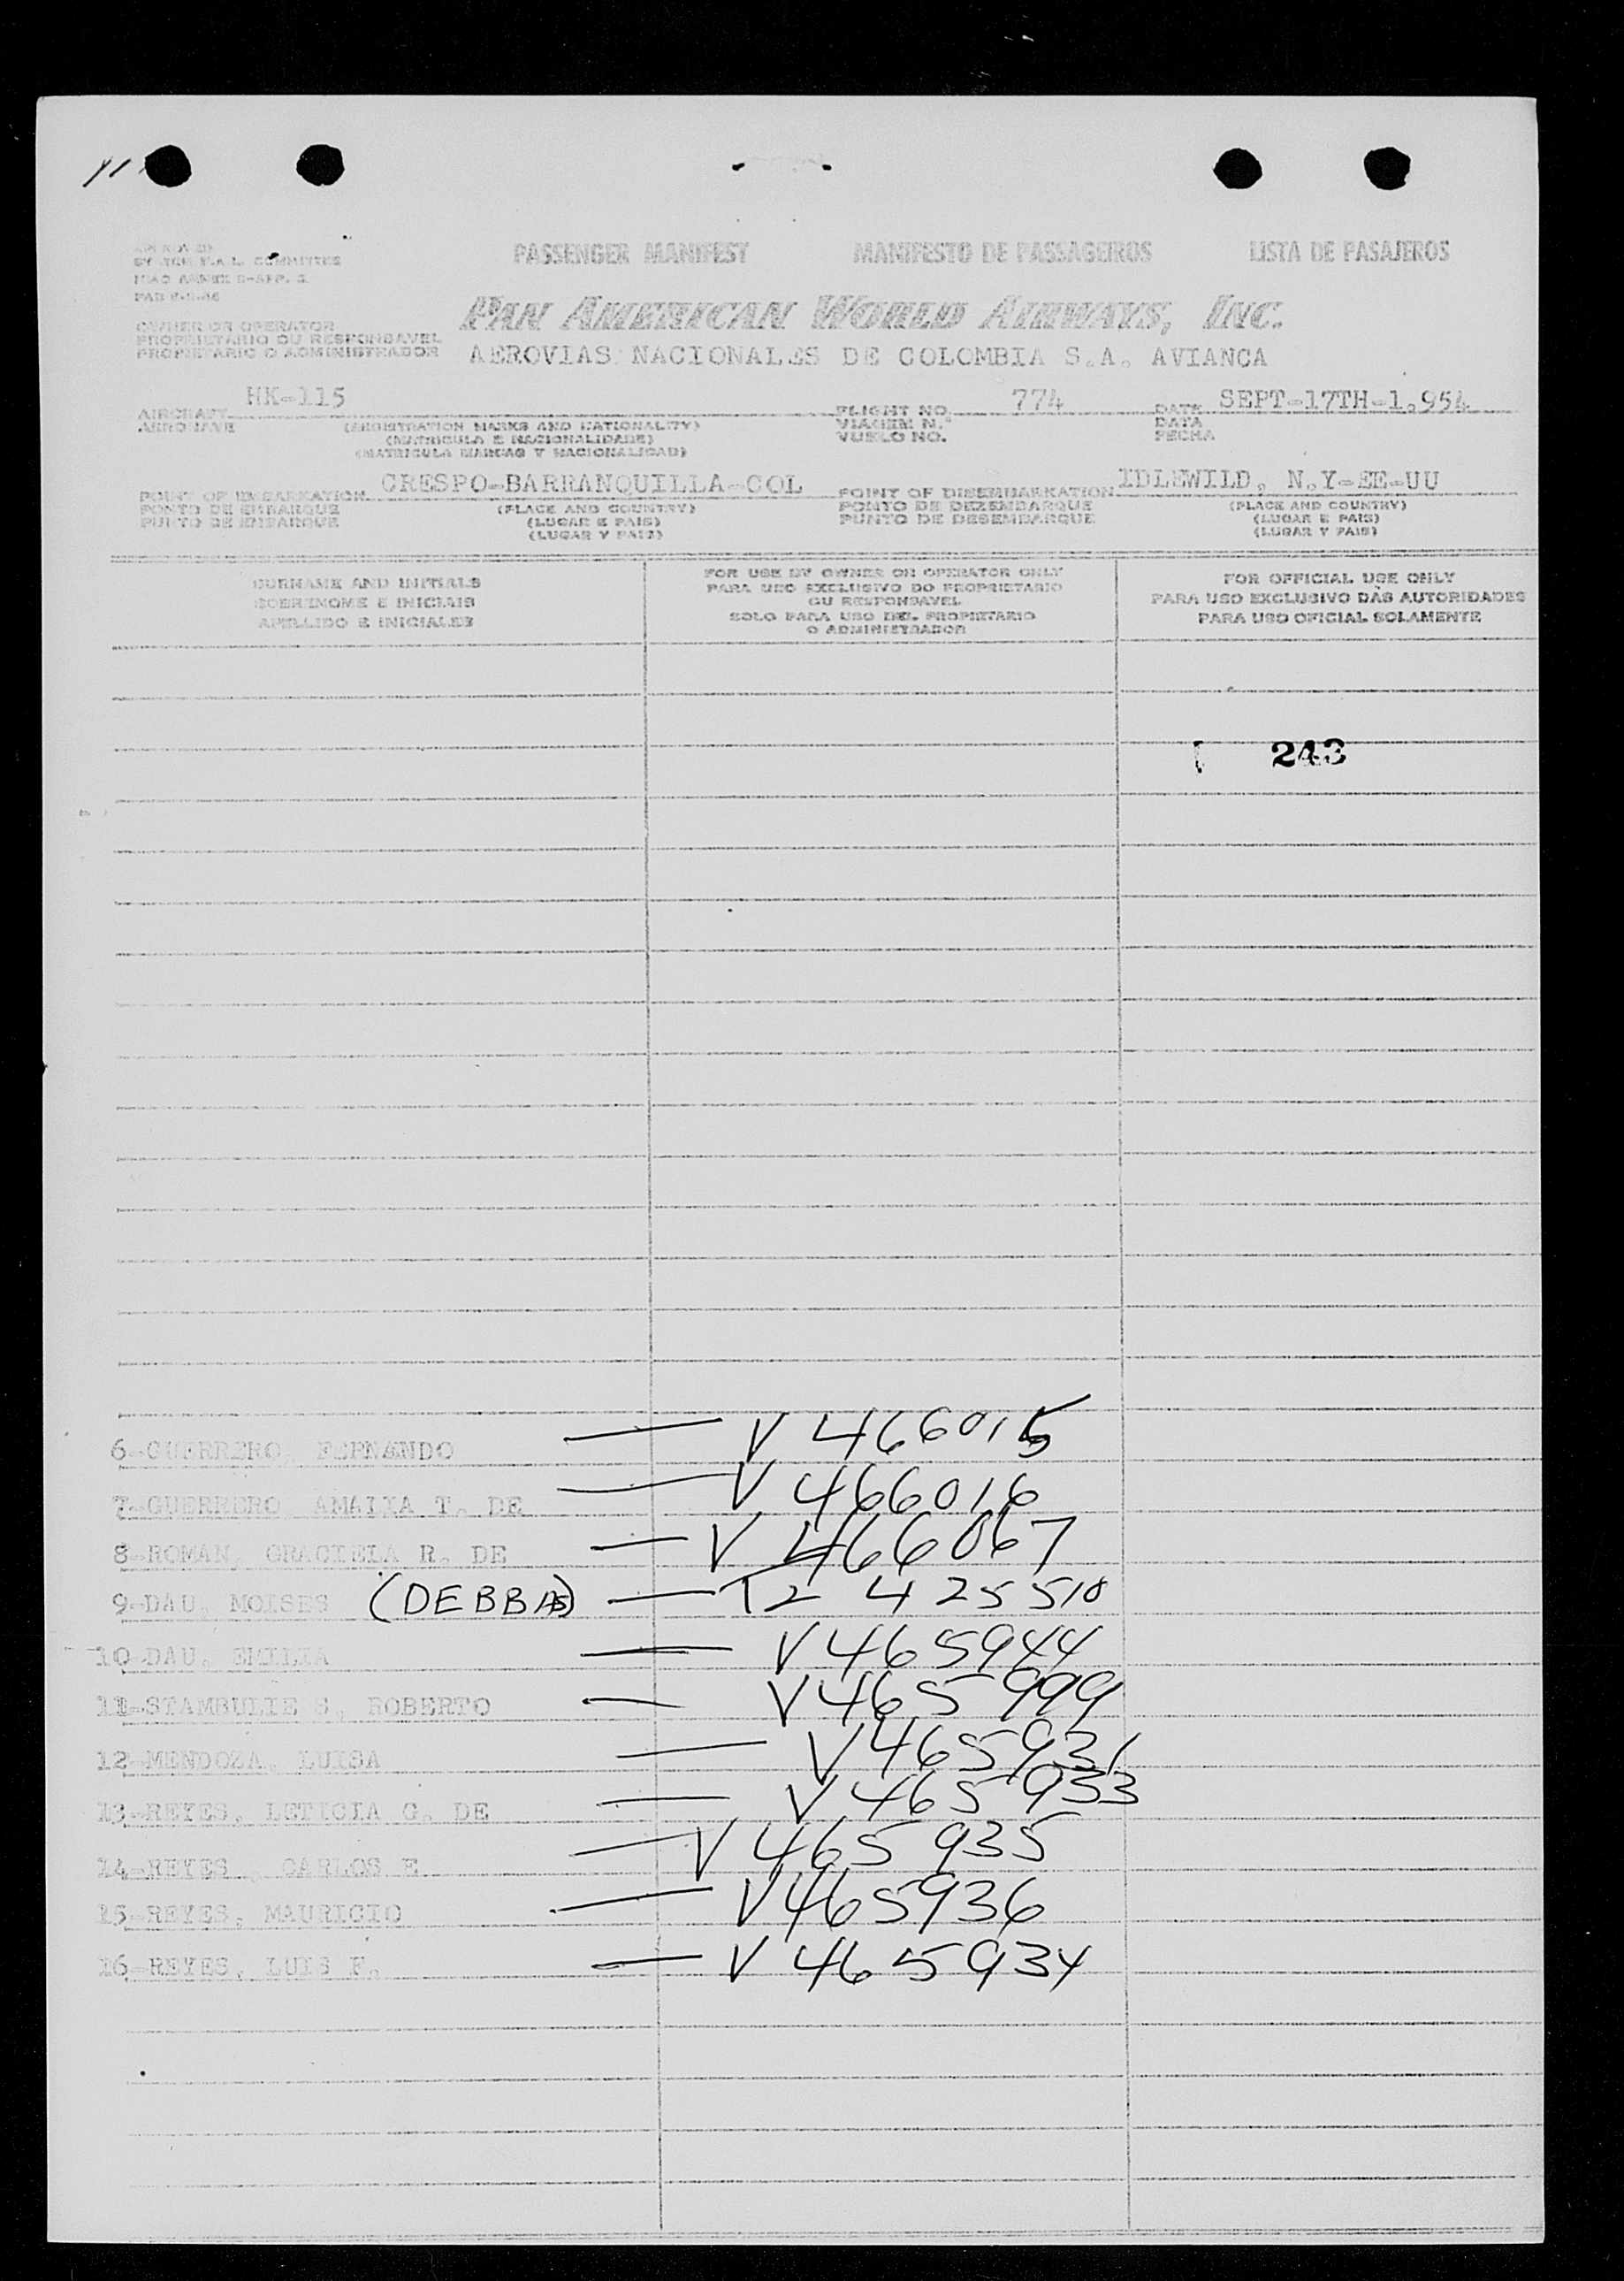 PASSENGER MANIFEST MANIFESTO DE PASSAGEIROS LISTA DE PASAJEROS
BY THE F.A.L. COMMITTEE
ICAO ANNEX 9-APP. 3
PAN AMERICAN WORLD AIRWAYS, INC.
OWNER OR OPERATOR
PROPRIETARIO OU RESPONSAVEL
PROPIETARIO O ADMINISTRADOR
AEROVIAS NACIONALES DE COLOMBIA S.A. AVIANCA
AIRCRAFT HK-115 FLIGHT NO. 774 DATE SEPT-17TH-1.954
AERONAVE (REGISTRATION MARKS AND NATIONALITY) VIAGEM N.º DATA
(MATRICULA E NACIONALIDADE) VUELO NO. FECHA
(MATRICULA MARCAS Y NACIONALIDAD)
POINT OF EMBARKATION CRESPO-BARRANQUILLA-COL POINT OF DISEMBARKATION IDLEWILD, N.Y-EE-UU
PONTO DE EMBARQUE (PLACE AND COUNTRY) PONTO DE DEZEMBARQUE (PLACE AND COUNTRY)
PUNTO DE EMBARQUE (LUGAR E PAIS) PUNTO DE DESEMBARQUE (LUGAR E PAIS)
(LUGAR Y PAIS) (LUGAR Y PAIS)
SURNAME AND INITIALS
SOBRENOME E INICIAIS
APELLIDO E INICIALES
FOR USE BY OWNER OR OPERATOR ONLY
PARA USO EXCLUSIVO DO PROPRIETARIO
OU RESPONSAVEL
SOLO PARA USO DEL PROPIETARIO
O ADMINISTRADOR
FOR OFFICIAL USE ONLY
PARA USO EXCLUSIVO DAS AUTORIDADES
PARA USO OFICIAL SOLAMENTE
243
6-GUERRERO, FERNANDO — V 466015
7-GUERRERO AMALIA T. DE — V 466016
8-ROMAN, GRACIELA R. DE — V 466067
9-DAU, MOISES (DEBBAS) — T2 425510
10-DAU, EMILIA — V 465944
11-STAMBULIE S, ROBERTO — V 465999
12-MENDOZA, LUISA — V 465931
13-REYES, LETICIA G. DE — V 465933
14-REYES, CARLOS E — V 465935
15-REYES, MAURICIO — V 465936
16-REYES, LUIS F. — V 465934